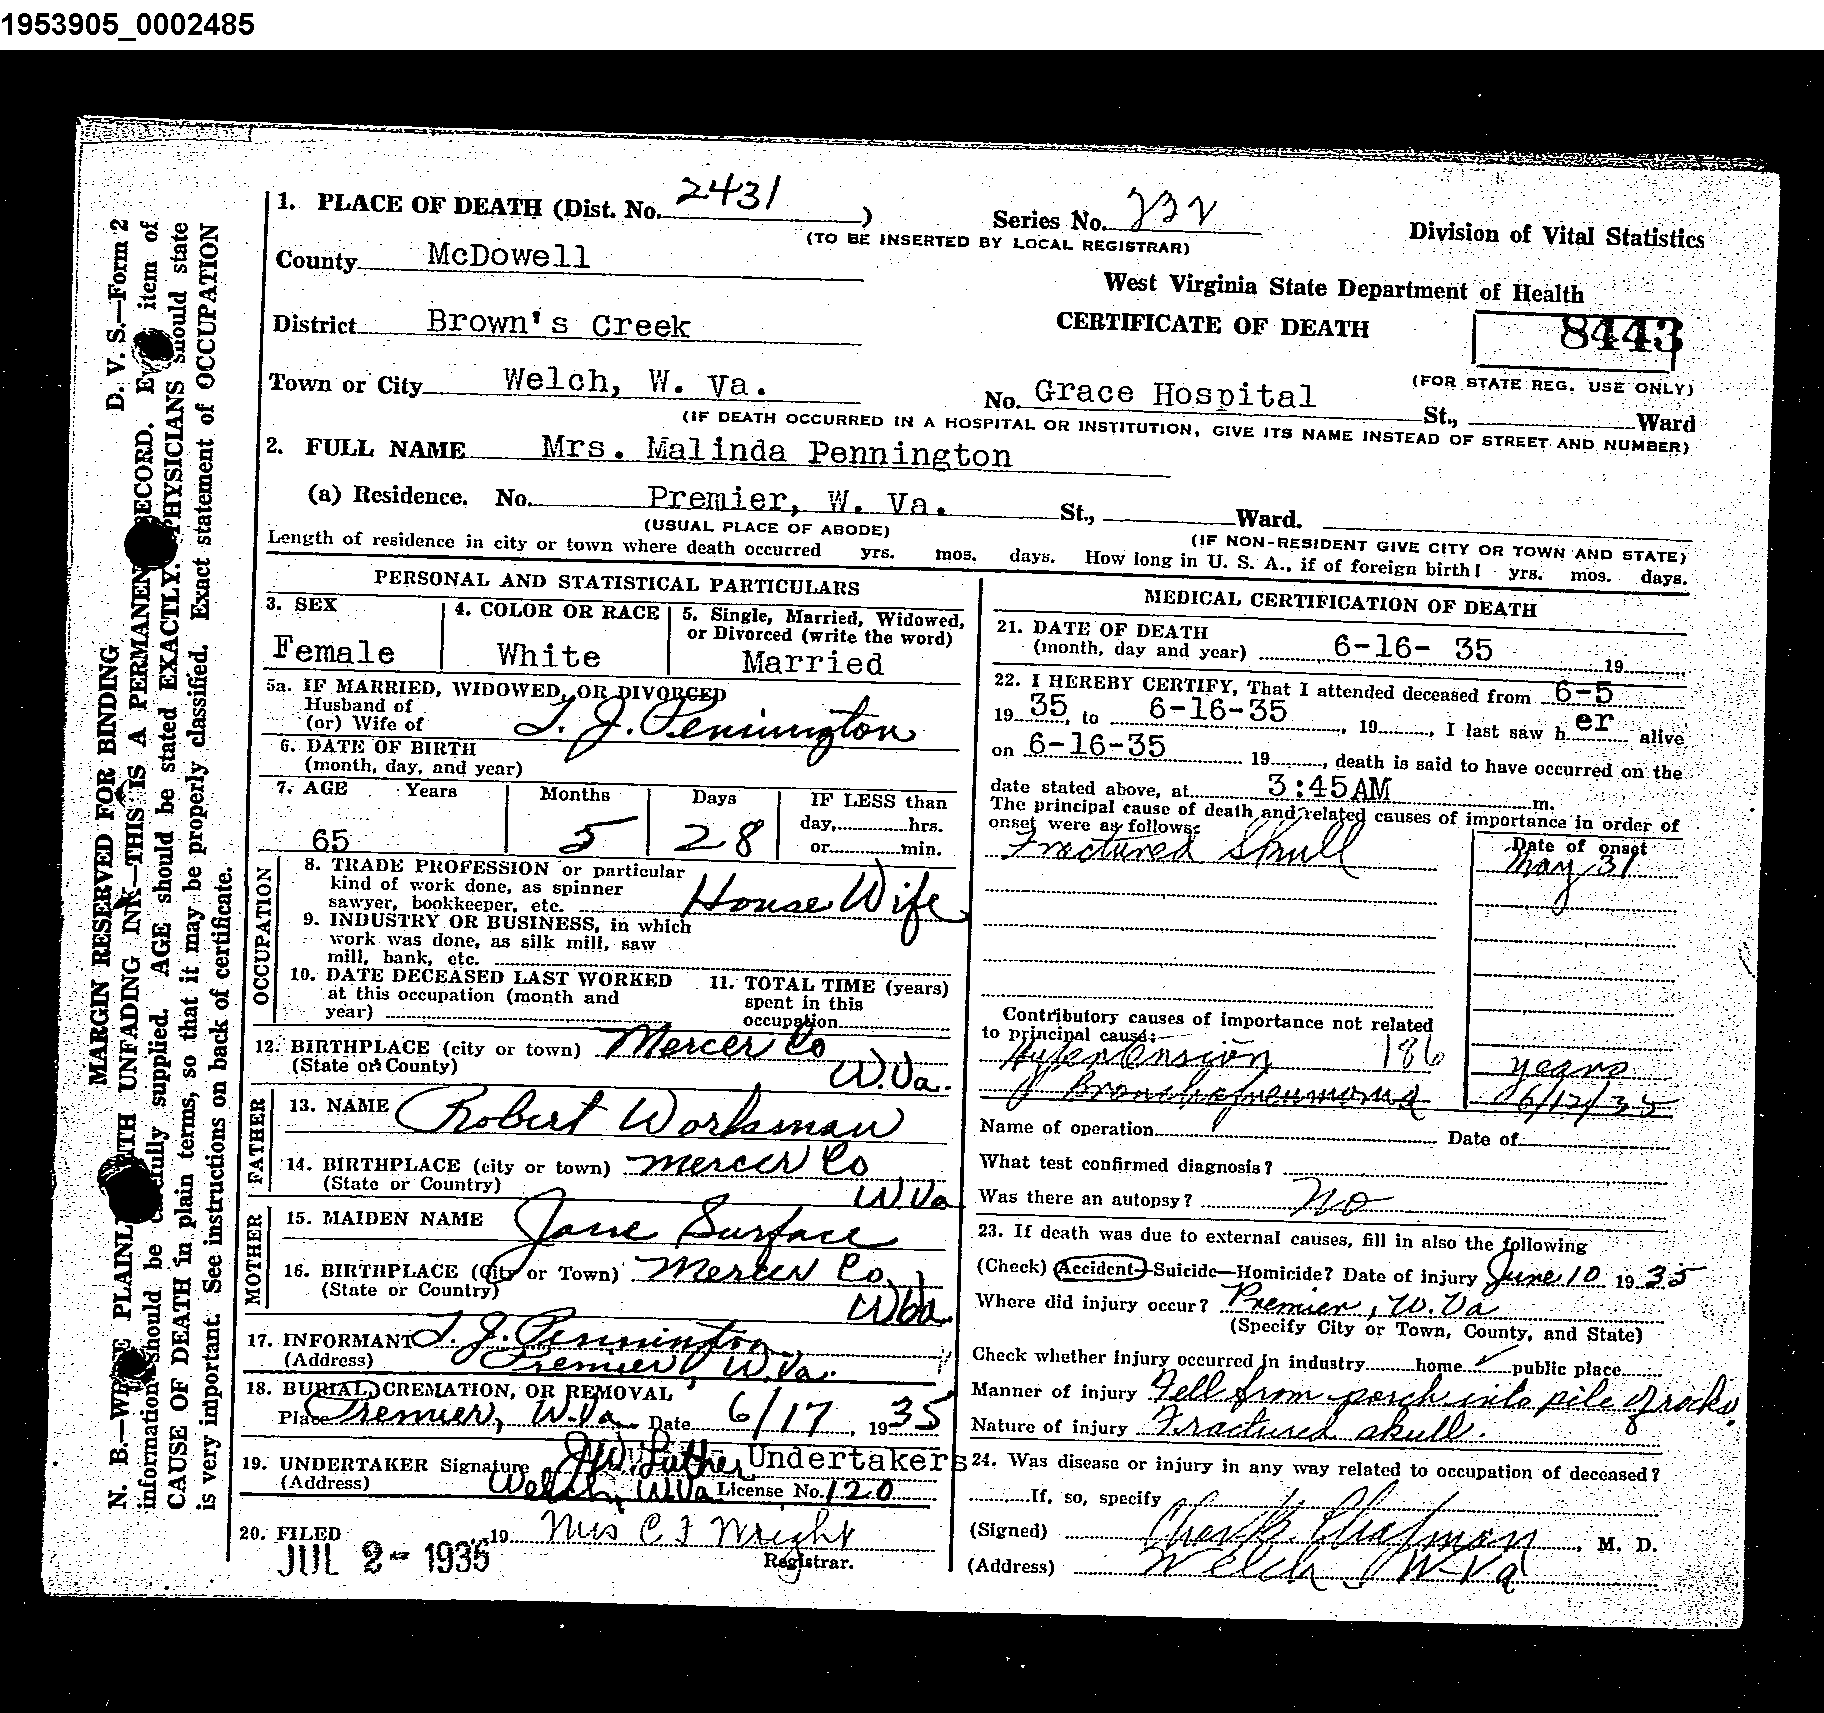 1953905_0002485
1. PLACE OF DEATH (Dist. No. 2431 )
Series No. 232
(TO BE INSERTED BY LOCAL REGISTRAR)
Division of Vital Statistics
County McDowell
West Virginia State Department of Health
District Brown's Creek
CERTIFICATE OF DEATH
8443
(FOR STATE REG. USE ONLY)
Town or City Welch, W. Va.
No. Grace Hospital St., Ward
(IF DEATH OCCURRED IN A HOSPITAL OR INSTITUTION, GIVE ITS NAME INSTEAD OF STREET AND NUMBER)
2. FULL NAME Mrs. Malinda Pennington
(a) Residence. No. Premier, W. Va. St., Ward.
(USUAL PLACE OF ABODE)
(IF NON-RESIDENT GIVE CITY OR TOWN AND STATE)
Length of residence in city or town where death occurred yrs. mos. days. How long in U. S. A., if of foreign birth? yrs. mos. days.
PERSONAL AND STATISTICAL PARTICULARS
3. SEX
Female
4. COLOR OR RACE
White
5. Single, Married, Widowed,
or Divorced (write the word)
Married
5a. IF MARRIED, WIDOWED, OR DIVORCED
Husband of
(or) Wife of T. J. Pennington
6. DATE OF BIRTH
(month, day, and year)
7. AGE Years Months Days IF LESS than
day, hrs.
65 5 28 or min.
OCCUPATION
8. TRADE PROFESSION or particular
kind of work done, as spinner
sawyer, bookkeeper, etc. House Wife
9. INDUSTRY OR BUSINESS, in which
work was done, as silk mill, saw
mill, bank, etc.
10. DATE DECEASED LAST WORKED
at this occupation (month and
year)
11. TOTAL TIME (years)
spent in this
occupation
12. BIRTHPLACE (city or town) Mercer Co
(State or County) W.Va.
FATHER
13. NAME Robert Workman
14. BIRTHPLACE (city or town) Mercer Co
(State or Country) W.Va
MOTHER
15. MAIDEN NAME Jane Surface
16. BIRTHPLACE (City or Town) Mercer Co.
(State or Country) W.Va.
17. INFORMANT T. J. Pennington
(Address) Premier, W.Va.
18. BURIAL, CREMATION, OR REMOVAL
Place Premier, W.Va Date 6/17, 1935
19. UNDERTAKER Signature J.W. Luther Undertakers
(Address) Welch, W.Va License No. 120
20. FILED 19 Mrs C F Wright
JUL 2- 1935 Registrar.
MEDICAL CERTIFICATION OF DEATH
21. DATE OF DEATH
(month, day and year) 6-16- 35 19
22. I HEREBY CERTIFY, That I attended deceased from 6-5
19 35, to 6-16-35, 19, I last saw h er alive
on 6-16-35 19, death is said to have occurred on the
date stated above, at 3:45AM m.
The principal cause of death and related causes of importance in order of
onset were as follows:
Date of onset
Fractured Skull May 31
Contributory causes of importance not related
to principal cause:
Hypertension 186 years
Bronchopneumonia 6/12/35
Name of operation Date of
What test confirmed diagnosis?
Was there an autopsy? No
23. If death was due to external causes, fill in also the following
(Check) Accident—Suicide—Homicide? Date of injury June 10 1935
Where did injury occur? Premier, W.Va
(Specify City or Town, County, and State)
Check whether injury occurred in industry home ✓ public place
Manner of injury Fell from porch into pile of rocks.
Nature of injury Fractured skull.
24. Was disease or injury in any way related to occupation of deceased?
If, so, specify
(Signed) Chas. B. Chapman, M. D.
(Address) Welch, W-Va
D. V. S.—Form 2
MARGIN RESERVED FOR BINDING
N. B.—WRITE PLAINLY WITH UNFADING INK—THIS IS A PERMANENT RECORD. Every item of
information should be carefully supplied. AGE should be stated EXACTLY. PHYSICIANS should state
CAUSE OF DEATH in plain terms, so that it may be properly classified. Exact statement of OCCUPATION
is very important. See instructions on back of certificate.